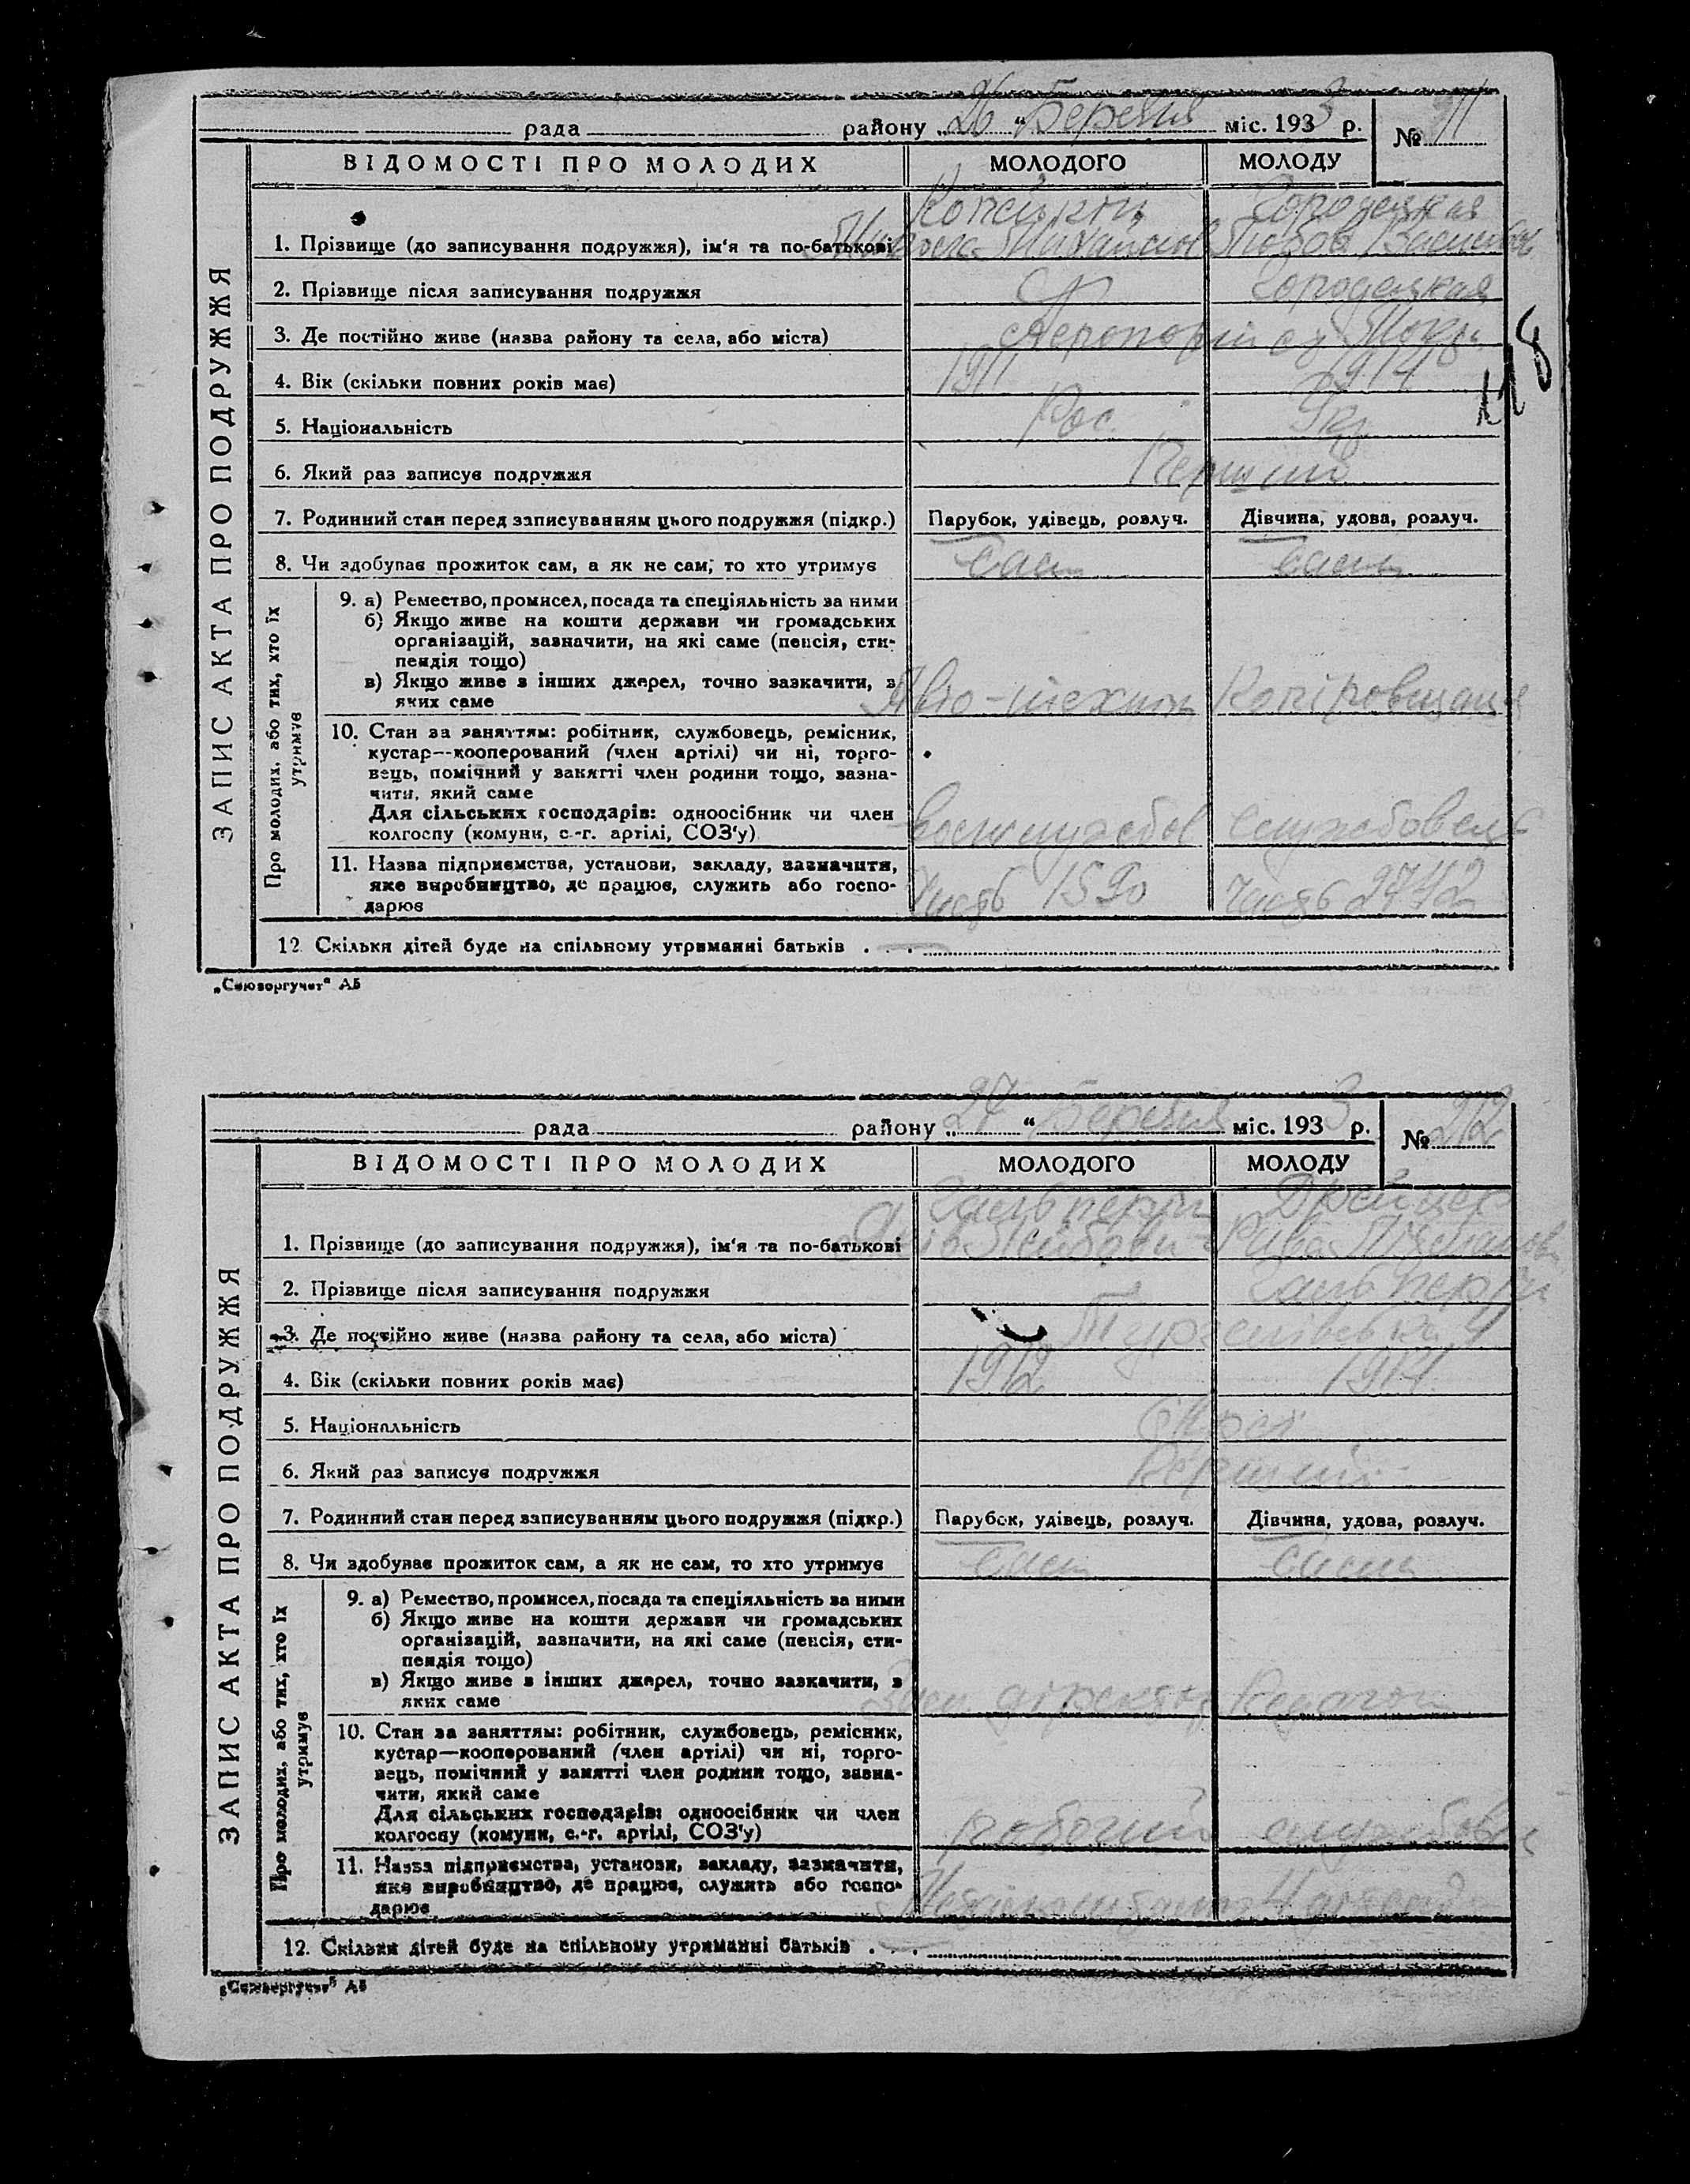 рада району „26“ Березня міс. 1933 р. № 211
ЗАПИС АКТА ПРО ПОДРУЖЖЯ
ВІДОМОСТІ ПРО МОЛОДИХ МОЛОДОГО МОЛОДУ
Городецкая
1. Прізвище (до записування подружжя), ім'я та по-батькові Микола Любов
2. Прізвище після записування подружжя Городецкая
3. Де постійно живе (назва району та села, або міста)
4. Вік (скільки повних років має) 1911 1914
5. Національність Рос. Укр.
6. Який раз записує подружжя Перший
7. Родинний стан перед записуванням цього подружжя (підкр.) Парубок, удівець, розлуч. Дівчина, удова, розлуч.
8. Чи здобував прожиток сам, а як не сам, то хто утримує сам сама
Про молодих, або тих, хто їх утримує
9. а) Ремество, промисел, посада та спеціяльність за ними
б) Якщо живе на кошти держави чи громадських
організацій, зазначити, на які саме (пенсія, сти-
пендія тощо)
в) Якщо живе з інших джерел, точно зазначити, з
яких саме Авто-технік Копіровщиця
10. Стан за заняттям: робітник, службовець, ремісник,
кустар—кооперований (член артілі) чи ні, торго-
вець, помічний у занятті член родини тощо, зазна-
чити, який саме
Для сільських господарів: одноосібник чи член
колгоспу (комуни, с.-г. артілі, СОЗ'у) службовець
11. Назва підприємства, установи, закладу, зазначити,
яке виробництво, де працює, служить або госпо-
дарює Часть 1590 Часть 2742
12. Скільки дітей буде на спільному утриманні батьків . . .
„Союзоргучет“ АБ
118
рада району „27“ Березня міс. 1933 р. № 212
ЗАПИС АКТА ПРО ПОДРУЖЖЯ
ВІДОМОСТІ ПРО МОЛОДИХ МОЛОДОГО МОЛОДУ
Гальперін
1. Прізвище (до записування подружжя), ім'я та по-батькові
2. Прізвище після записування подружжя Гальперін
3. Де постійно живе (назва району та села, або міста)
4. Вік (скільки повних років має) 1912 1914
5. Національність
6. Який раз записує подружжя Перший
7. Родинний стан перед записуванням цього подружжя (підкр.) Парубок, удівець, розлуч. Дівчина, удова, розлуч.
8. Чи здобував прожиток сам, а як не сам, то хто утримує сам сама
Про молодих, або тих, хто їх утримує
9. а) Ремество, промисел, посада та спеціяльність за ними
б) Якщо живе на кошти держави чи громадських
організацій, зазначити, на які саме (пенсія, сти-
пендія тощо)
в) Якщо живе з інших джерел, точно зазначити, з
яких саме
10. Стан за заняттям: робітник, службовець, ремісник,
кустар—кооперований (член артілі) чи ні, торго-
вець, помічний у занятті член родини тощо, зазна-
чити, який саме
Для сільських господарів: одноосібник чи член
колгоспу (комуни, с.-г. артілі, СОЗ'у)
11. Назва підприємства, установи, закладу, зазначити,
яке виробництво, де працює, служить або госпо-
дарює
12. Скільки дітей буде на спільному утриманні батьків . . .
„Союзоргучет“ АБ